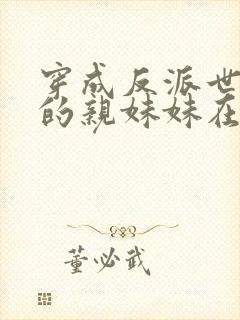 穿成反派世
的亲妹妹在
董必武